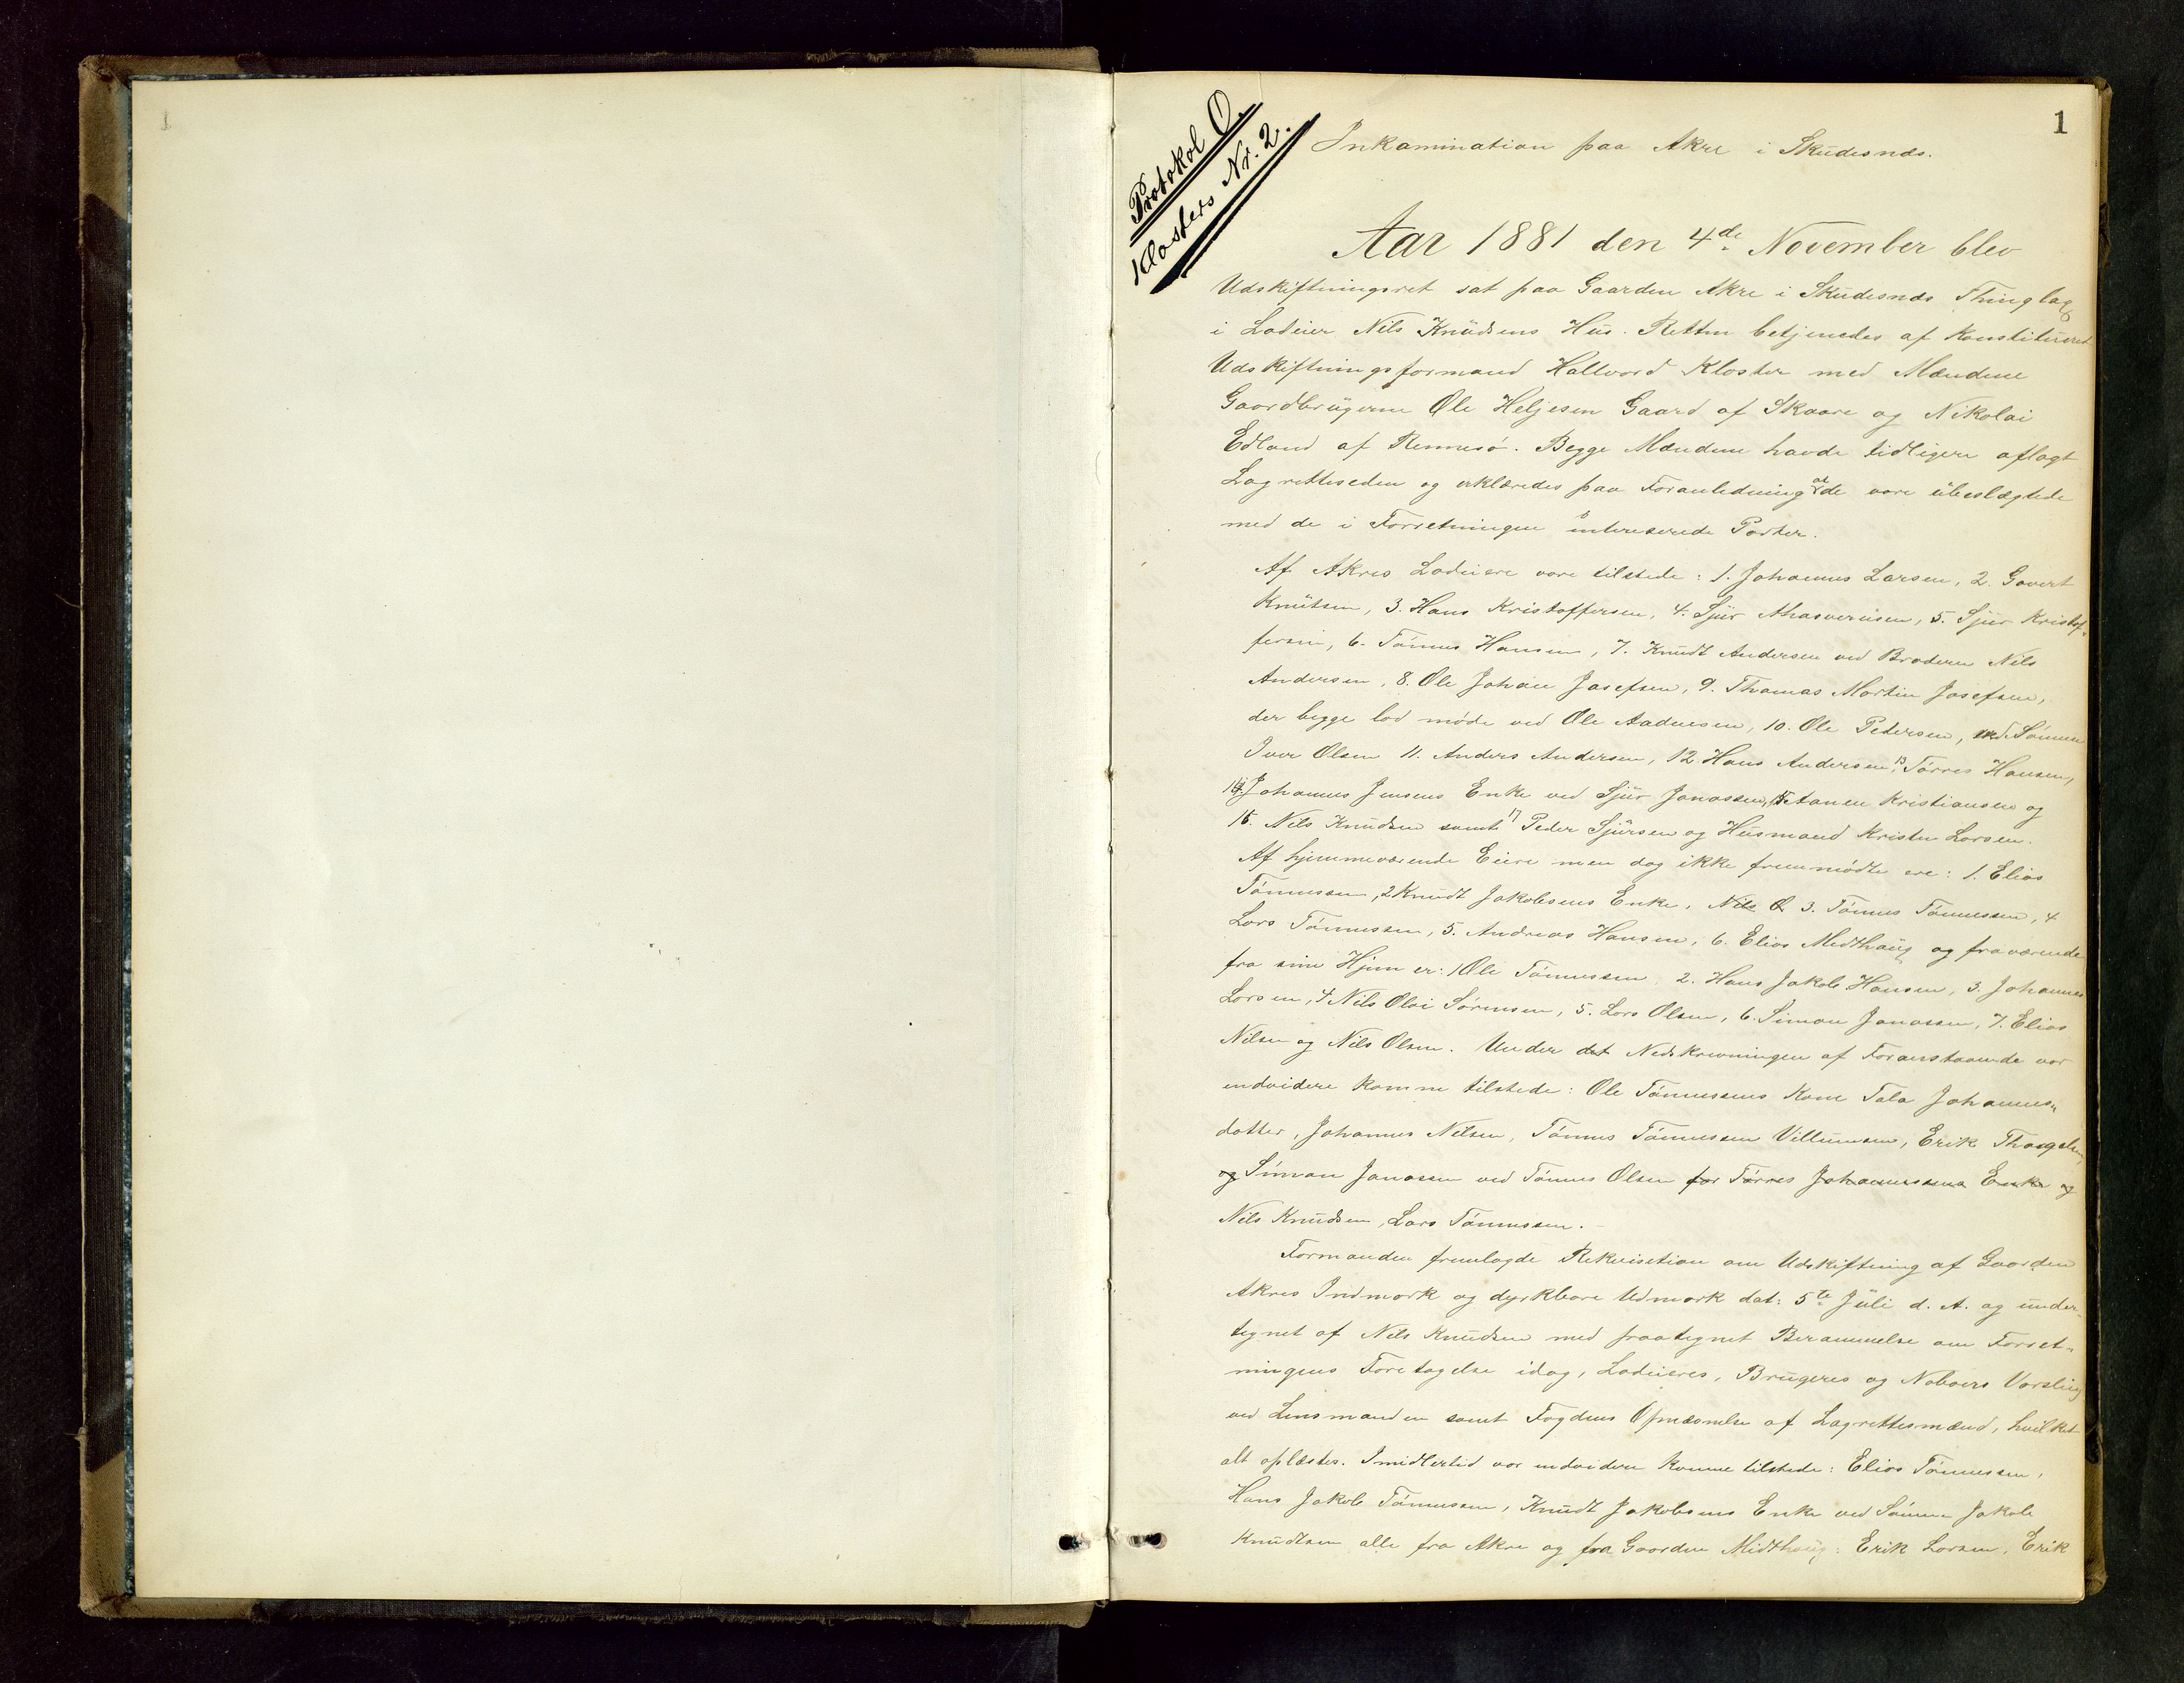 1
1
Protokol O.
Klosters Nr. 2.
Inkamination paa Akre i Skudesnæs.
Aar 1881 den 4de November blev
Udskiftningsret sat paa Gaarden Akre i Skudesnæs Thinglag
i Lodeier Nils Knudsens Hus. Retten betjenedes af konstitueret
Udskiftningsformand Hallvard Kloster med Mændene
Gaardbrugerne Ole Heljesen Gaard af Skaare og Nikolai
Edland af Rennesö. Begge Mændene havde tidligere aflagt
Lagretteseden og erklæredes paa Foranledning at de vare ubeslægtede
med de i Forretningen interesserede Parter.
Af Akres Lodeiere vare tilstede: 1. Johannes Larsen, 2. Govert
Knutsen, 3. Hans Kristoffersen, 4. Sjur Ahasverusen, 5. Sjur Kristof-
fersen, 6. Tönnes Hansen, 7. Knudt Andersen ved Broderen Nils
Andersen, 8. Ole Johan Josefsen, 9. Thomas Martin Josefsen,
der begge lod möde ved Ole Aadnesen, 10. Ole Pedersen, ved Sönnen
Iver Olsen 11. Anders Andersen, 12 Hans Andersen, 13 Torres Hansen,
14. Johannes Jensens Enke ved Sjur Jonassen, 15 Aanen Kristiansen og
16. Nils Knudsen samt 17 Peder Sjursen og Husmand Kristen Larsen.
Af hjemmeværende Eiere men dog ikke fremmödte ere: 1. Elias
Tönnessen, 2 Knudt Jakobsens Enke, Nils O 3. Tönnes Tönnessen, 4
Lars Tönnessen, 5. Andreas Hansen, 6. Elias Medthaug og fraværende
fra sine Hjem er: 1 Ole Tönnessen 2. Hans Jakob Hansen, 3. Johannes
Larsen, 4 Nils Olai Sörensen, 5. Lars Olsen, 6. Simon Jonassen, 7. Elias
Nilsen og Nils Olsen. Under det Nedskrivningen af Foranstaaende var
endvidere komne tilstede: Ole Tönnessens Kone Tala Johannes-
datter, Johannes Nilsen, Tönnes Tönnessen Villumsen, Erik
og Simon Jonassen ved Tönnes Olsen for Törres Johannessens Enke og
Nils Knudsen, Lars Tönnessen.
Formanden fremlagde Rekvisition om Udskiftning af Gaarden
Akres Indmark og dyrkbare Udmark dat: 5te Juli d. A. og under-
tegnet af Nils Knudsen med paategnet Berammelse om Forret-
ningens Foretagelse idag, Lodeieres, Brugeres og Naboers Varsling
ved Lensmanden samt Fogdens Opnævnelse af Lagrettesmænd, hvilket
alt oplæstes. Imidlertid var endvidere komne tilstede: Elias Tönnessen,
Hans Jakob Tönnessen, Knudt Jakobsens Enke ved Sönnen Jakob
Knudtsen alle fra Akre og fra Gaarden Midthaug: Erik Larsen, Erik